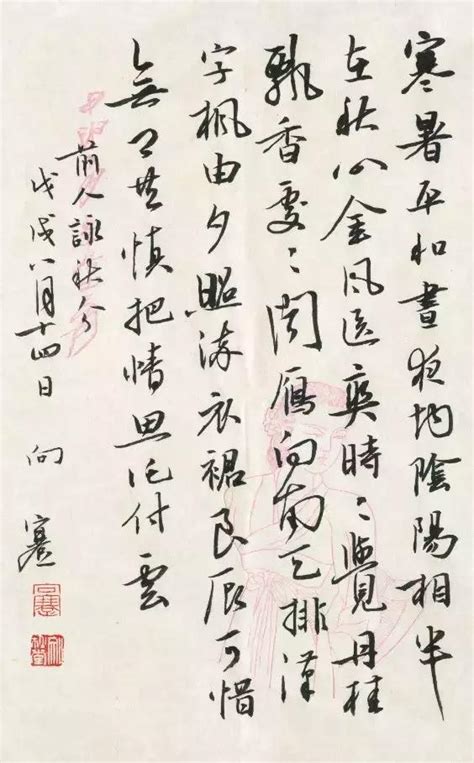 寒暑平和晝夜均陰陽相半
在秋分金風送爽時〻覺丹桂
飄香處〻聞雁向南天排漢
字楓由夕照染衣裙良辰可惜
無人共慎把情思託付雲
前人詠秋分
戊戌八月十四日 向